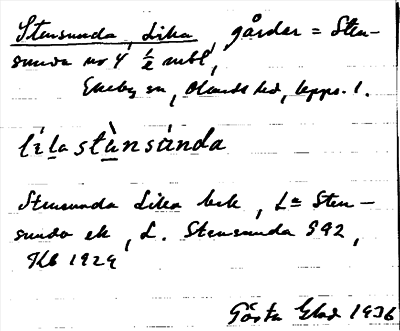 Stensunda, Lilla, gårdar = Sten-
sunda nr 4 ½ mtl,
Ekeby sn, Olands hd, Upps. l.
lìlastànsùnda
Stensunda Lilla bek, La Sten-
sunda ek, L. Stensunda 592,
Kb 1929
Gösta Elad 1936